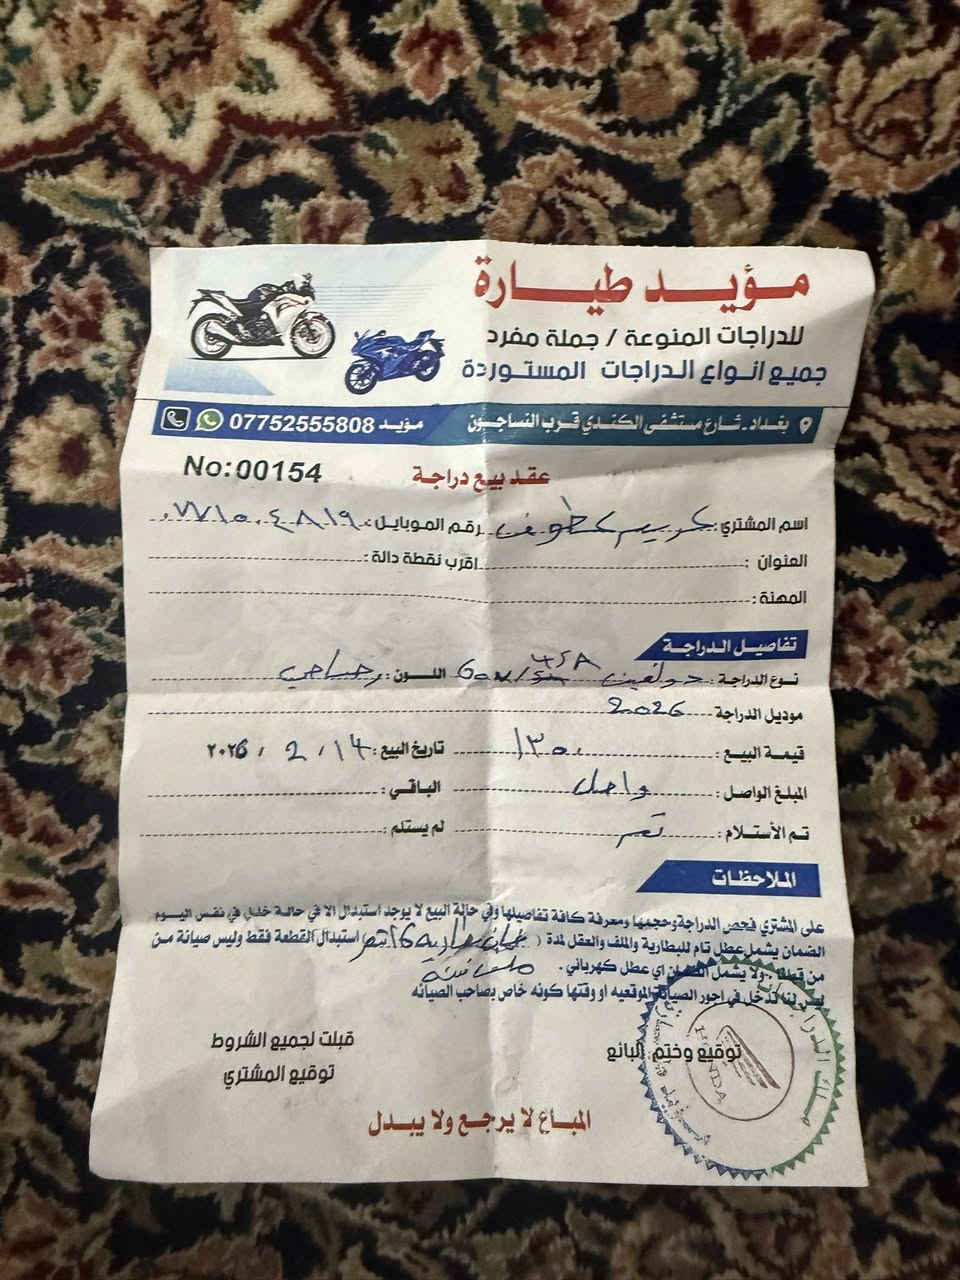 مؤيد طيارة
للدراجات المنوعة / جملة مفرد
جميع انواع الدراجات المستوردة
بغداد - شارع مستشفى الكندي قرب النساجون
مؤيد 07752555808
No:00154
عقد بيع دراجة
اسم المشتري : كريم رقم الموبايل : ٠٧٧١٥٠٤٨١٩
العنوان : اقرب نقطة دالة :
المهنة :
تفاصيل الدراجة
نوع الدراجة : دولفين 60v/ 45A اللون : رصاصي
موديل الدراجة 2026
قيمة البيع : ١٣٥٠ تاريخ البيع : ١٤ / 2 / ٢٠٢٦
المبلغ الواصل : واصل الباقي :
تم الأستلام : تم لم يستلم :
الملاحظات
على المشتري فحص الدراجة وحجمها ومعرفة كافة تفاصيلها وفي حالة البيع لا يوجد استبدال الا في حالة خلل في نفس اليوم
الضمان يشمل عطل تام للبطارية والملف والعقل لمدة ( استبدال القطعة فقط وليس صيانة من
من قبلنا . ولا يشمل الضمان اي عطل كهربائي .
ليس لنا تدخل في اجور الصيانة الموقعيه او وقتها كونه خاص بصاحب الصيانه
قبلت لجميع الشروط
توقيع المشتري
توقيع وختم البائع
HONDA
المباع لا يرجع ولا يبدل